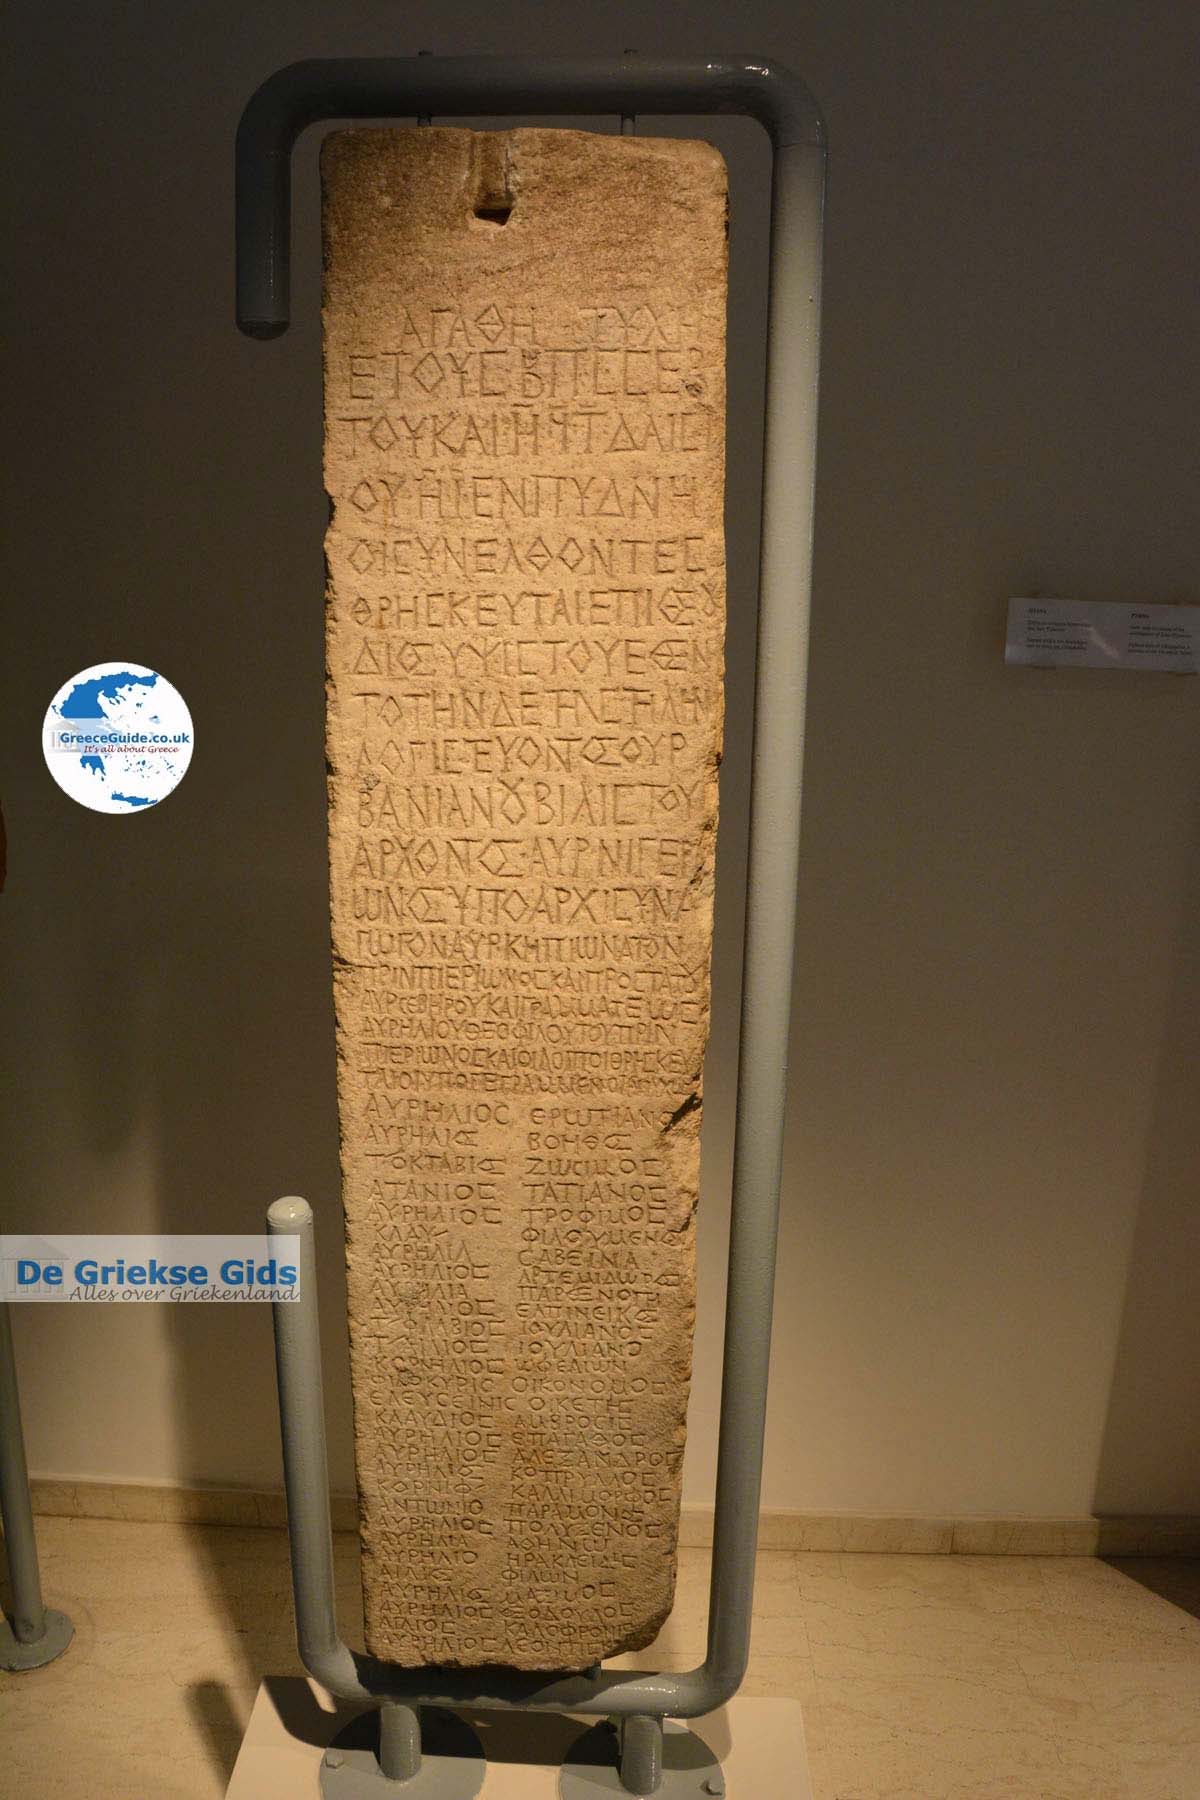 ΑΓΑΘΗ ΤΥΧΗ
ΕΤΟΥΣ ΒΠΣ ΣΕΒ
ΤΟΥ ΚΑΙ Η ΤΔΑΙΣ
ΟΥ ΗΙ ΕΝ ΠΥΔΝΗ
ΟΙ ΣΥΝΕΛΘΟΝΤΕΣ
ΘΡΗΣΚΕΥΤΑΙ ΕΠΙ ΘΕΟΥ
ΔΙΟΣ ΥΨΙΣΤΟΥ ΕΘΕΝ
ΤΟ ΤΗΝΔΕ ΤΗΝ ΣΤΗΛΗΝ
ΛΟΓΙΣΤΕΥΟΝΤΟΣ ΟΥΡ
ΒΑΝΙΑΝΟΥ ΒΙΛΙΣΤΟΥ
ΑΡΧΟΝΤΟΣ ΑΥΡ ΝΙΓΕΡ
ΩΝΟΣ ΥΠΟ ΑΡΧΙΣΥΝΑ
ΓΩΓΟΝ ΑΥΡ ΚΗΠΙΩΝΑ ΤΟΝ
ΠΡΙΝ ΠΙΕΡΙΩΝΟΣ ΚΑΙ ΠΡΟΣΤΑΤΟΥ
ΑΥΡ ΣΕΒΗΡΟΥ ΚΑΙ ΓΡΑΜΜΑΤΕΩΣ
ΑΥΡΗΛΙΟΥ ΘΕΟΦΙΛΟΥ ΤΟΥ ΠΡΙΝ
ΠΙΕΡΙΩΝΟΣ ΚΑΙ ΟΙ ΛΟΙΠΟΙ ΘΡΗΣΚΕΥ
ΤΑΙ ΟΙ ΥΠΟΓΕΓΡΑΜΜΕΝΟΙ
ΑΥΡΗΛΙΟΣ ΕΡΩΤΙΑΝΟΣ
ΑΥΡΗΛΙΟΣ ΒΟΗΘΟΣ
Τ ΟΚΤΑΒΙΟΣ ΖΩΣΙΜΟΣ
ΑΤΑΝΙΟΣ ΤΑΤΙΑΝΟΣ
ΑΥΡΗΛΙΟΣ ΤΡΟΦΙΜΟΣ
ΚΛΑΥ ΦΙΛΟΥΜΕΝΟΣ
ΑΥΡΗΛΙΑ ΣΑΒΕΙΝΑ
ΑΥΡΗΛΙΟΣ ΑΡΤΕΜΙΔΩΡΟΣ
ΑΥΡΗΛΙΑ ΠΑΡΕΝΟΠΗ
ΑΥΡΗΛΙΟΣ ΕΛΠΙΝΕΙΚΟΣ
Τ ΦΛΑΒΙΟΣ ΙΟΥΛΙΑΝΟΣ
ΙΟΥΛΙΑΝΟ
ΚΟΡΝΗΛΙΟΣ ΩΦΕΛΙΩΝ
ΦΙΛΟΚΥΡΙΣ ΟΙΚΟΝΟΜΟΣ
ΕΛΕΥΣΕΙΝΙΣ ΟΙΚΕΤΗΣ
ΚΛΑΥΔΙΟΣ ΑΜΒΡΟΣΙΣ
ΑΥΡΗΛΙΟΣ ΕΠΑΓΑΘΟΣ
ΑΥΡΗΛΙΟΣ ΑΛΕΞΑΝΔΡΟΣ
ΑΥΡΗΛΙΟΣ ΚΟΠΡΥΛΛΟΣ
ΚΟΡΝΙΦΙ ΚΑΛΛΙΜΟΡΦΟΣ
ΑΝΤΩΝΙΟ ΠΑΡΑΜΟΝΟΣ
ΑΥΡΗΛΙΟΣ ΠΟΛΥΞΕΝΟΣ
ΑΥΡΗΛΙΑ ΑΘΗΝΩ
ΑΥΡΗΛΙΟ ΗΡΑΚΛΕΙΔΗΣ
ΑΙΛΙΟΣ ΦΙΛΩΝ
ΑΥΡΗΛΙΟΣ ΜΑΞΙΜΟΣ
ΑΥΡΗΛΙΟΣ ΘΕΟΔΟΥΛΟΣ
ΚΑΛΟΦΡΟΝΙΣ
ΑΥΡΗΛΙΟΣ ΛΕΟΝΤΙΣΚ
GreeceGuide.co.uk
It's all about Greece
De Griekse Gids
Alles over Griekenland